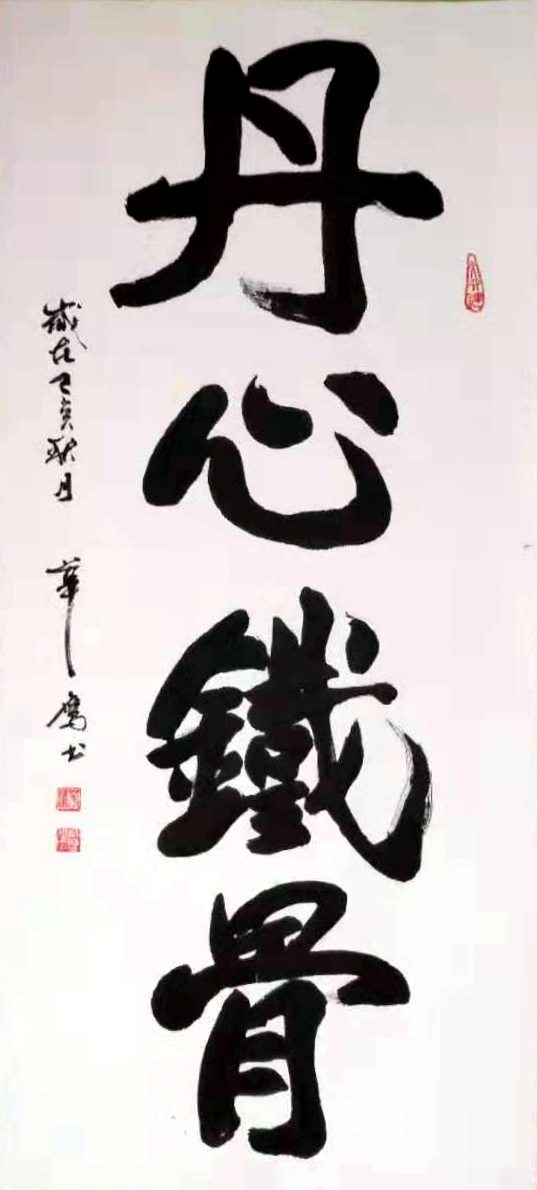 丹心鐵骨
歲在己亥秋月 華鷹书